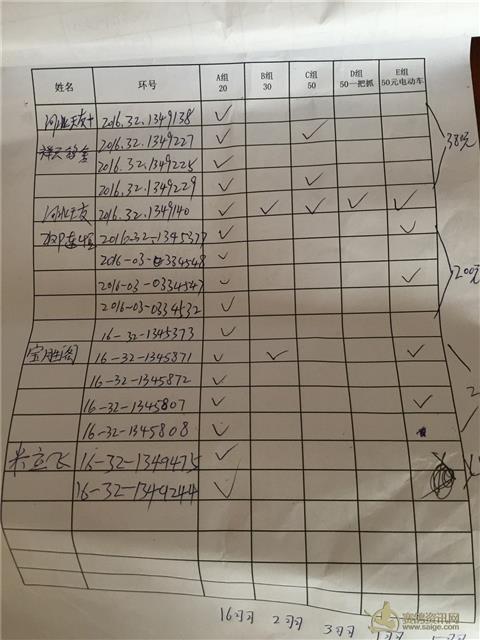 姓名 环号 A组 20 B组 30 C组 50 D组 50一把抓 E组 50元电动车
2016.32.1349138 ✓
2016.32.1349227 ✓ ✓
2016.32.1349225 ✓
2016.32.1349229 ✓ ✓
380元
2016.32.1349140 ✓ ✓ ✓ ✓ ✓
2016-32-1345377 ✓ ✓
2016-03-0334548 ✓
2016-03-0334547 ✓ ✓
2016-03-0334532 ✓
200元
16-32-1345373 ✓
宝胜阁 16-32-1345871 ✓ ✓ ✓
16-32-1345872 ✓
16-32-1345807 ✓ ✓
16-32-1345808 ✓
米立飞 16-32-1349475 ✓
16-32-1349244 ✓
16羽 2羽 3羽 1羽
赛鸽资讯网
www.saige.com